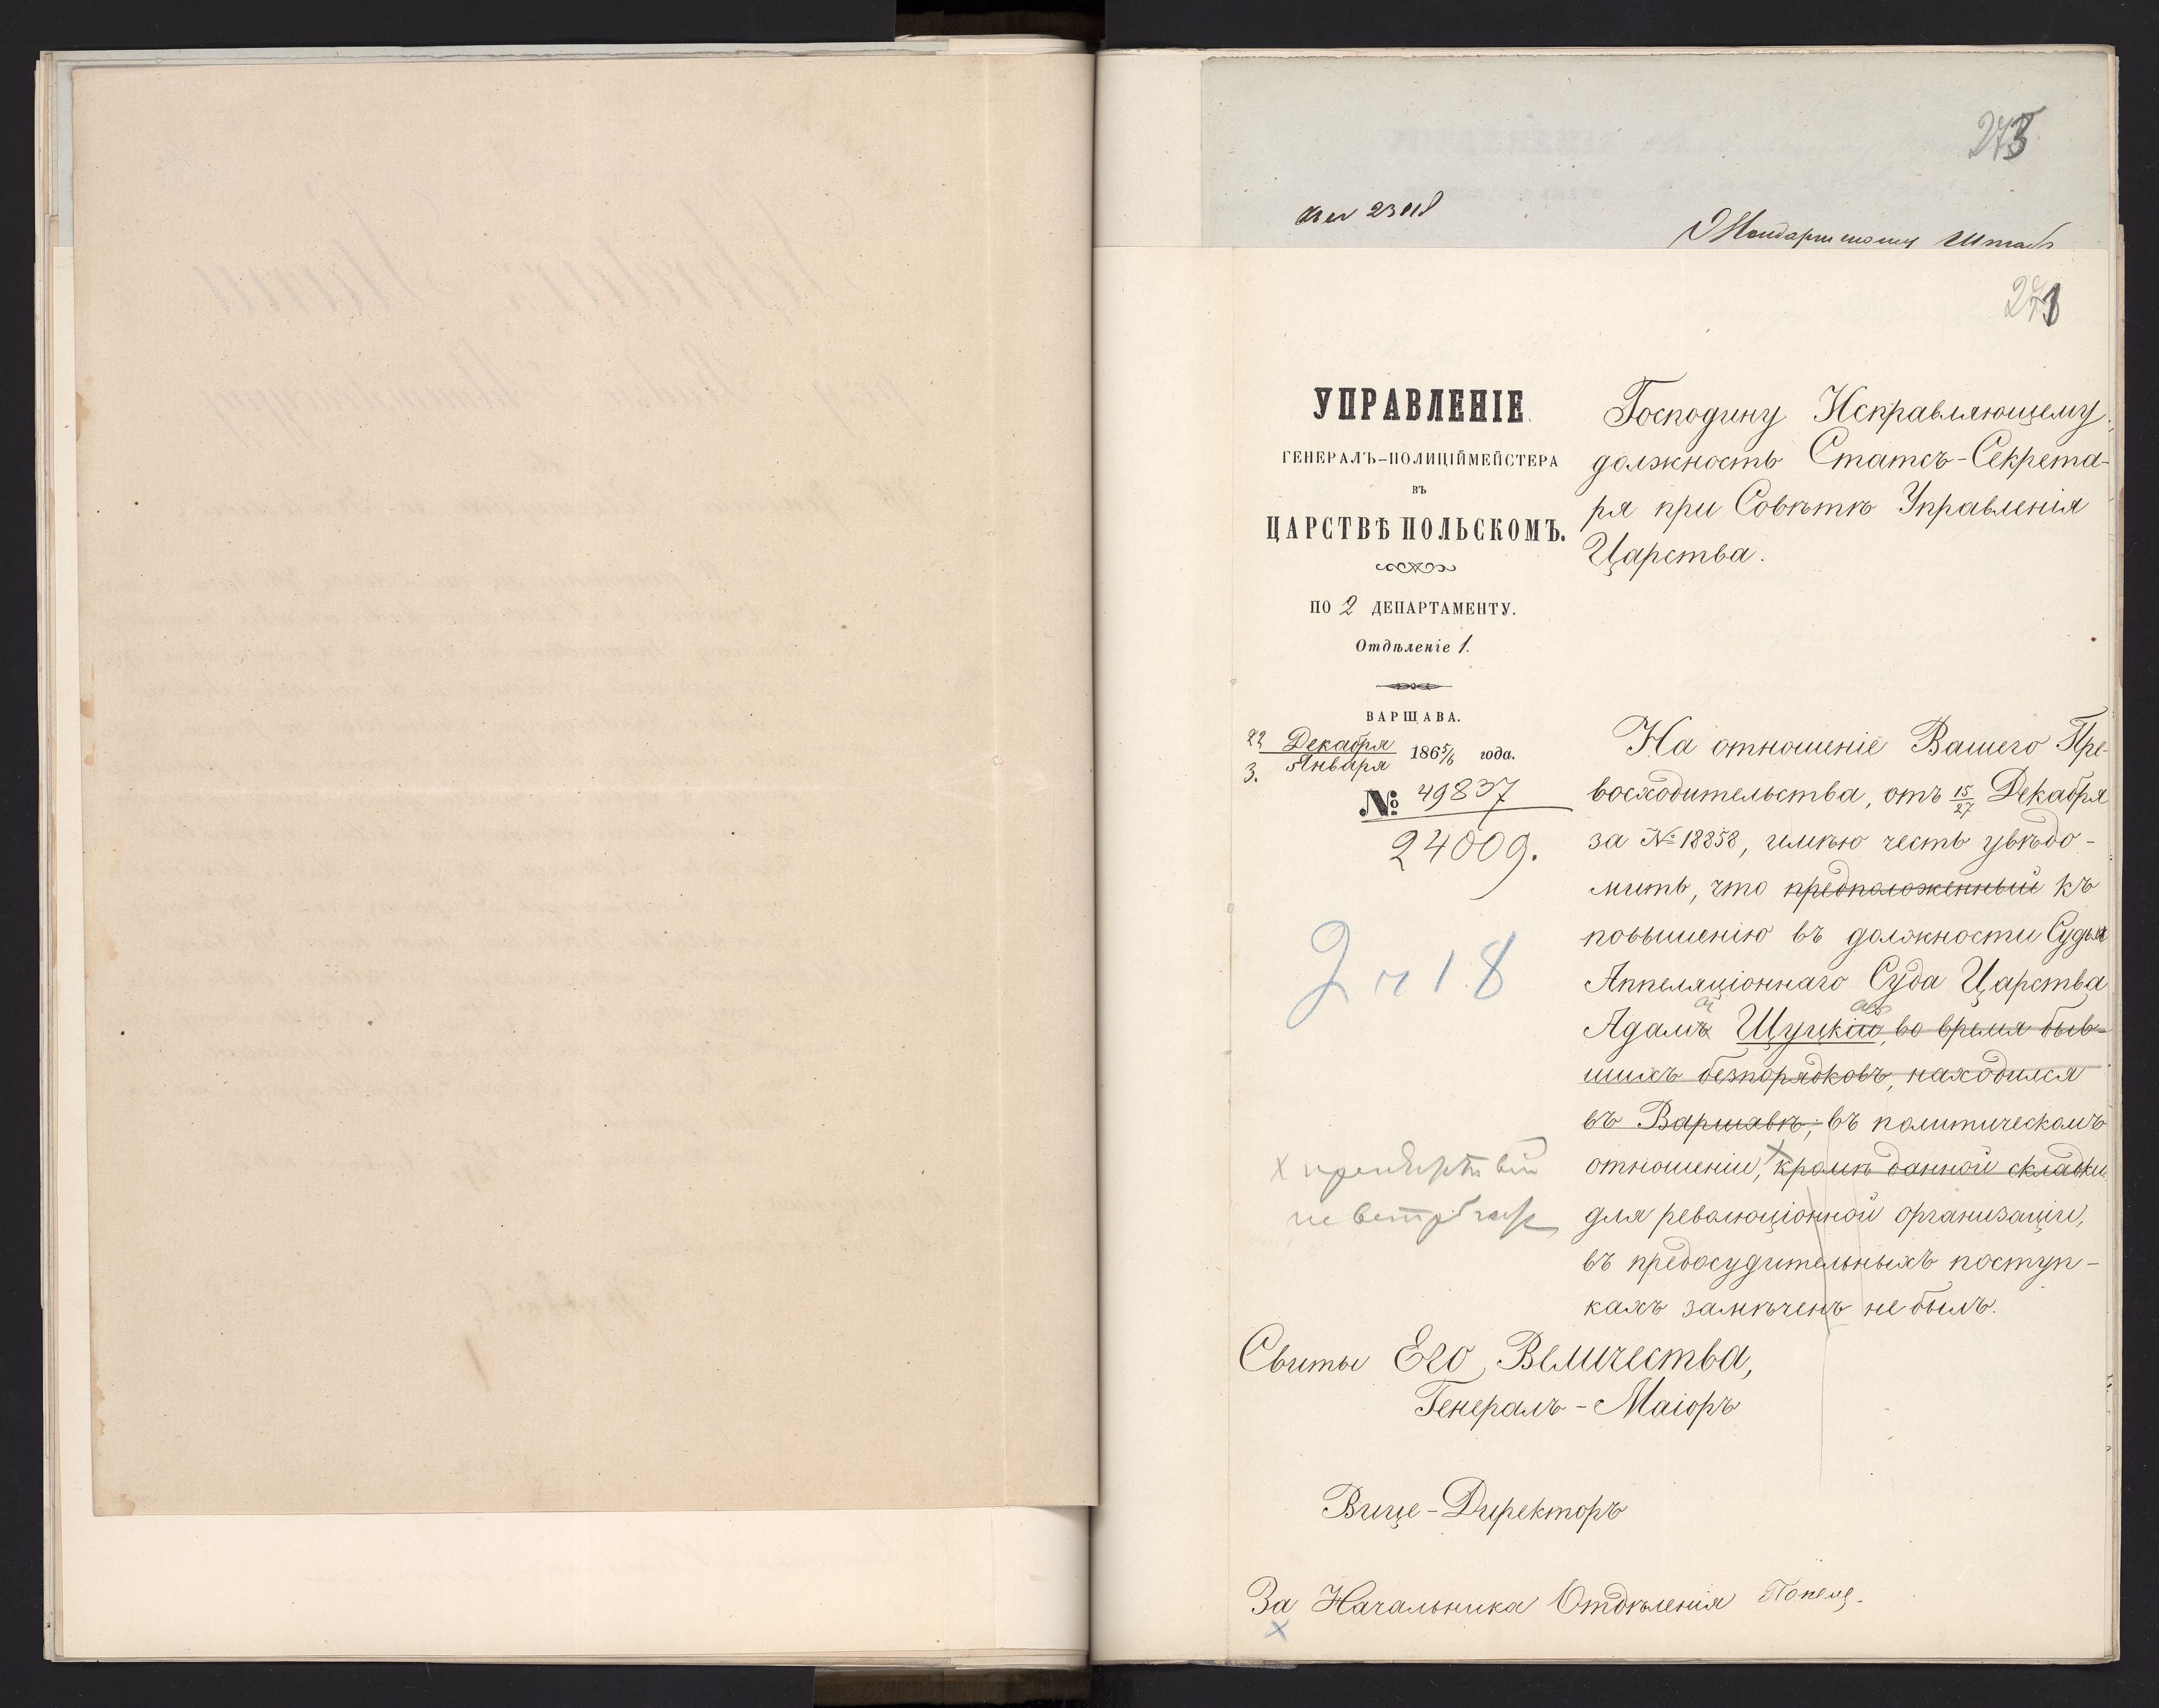 273
Жандармскому Штабу
271
УПРАВЛЕНІЕ
ГЕНЕРАЛЪ-ПОЛИЦІЙМЕЙСТЕРА
ВЪ
ЦАРСТВѢ ПОЛЬСКОМЪ.
ПО 2 ДЕПАРТАМЕНТУ.
Отдѣленіе 1.
ВАРШАВА.
22 Декабря
3. Января 1865/6 года.
№ 49837
24009.
Господину Исправляющему
должность Статсъ-Секрета-
ря при Совѣтѣ Управленія
Царства.
На отношеніе Вашего Пре-
восходительства, отъ 15/27 Декабря
за № 18858, имѣю честь увѣдо-
мить, что предположенный къ
повышенію въ должности Судьи
Аппеляціоннаго Суда Царства
Адамъ Щуцкій, во время быв-
шихъ безпорядковъ, находился
въ Варшавѣ; въ политическомъ
отношеніи, кромѣ данной складки
для революціонной организаціи,
въ предосудительныхъ поступ-
кахъ замѣченъ не былъ.
х препятствій
не встрѣчаю
Свиты Его Величества,
Генералъ-Маіоръ
Вице-Директоръ
За Начальника Отдѣленія